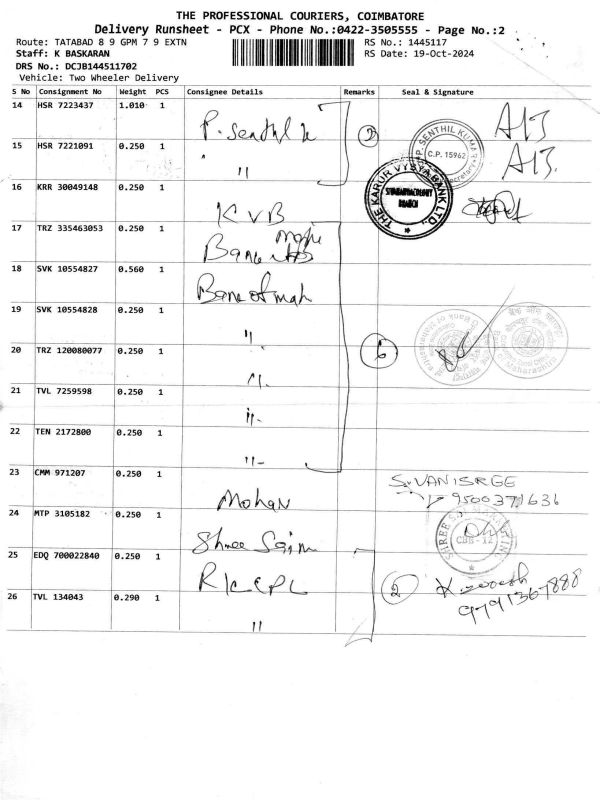 THE PROFESSIONAL COURIERS, COIMBATORE
Delivery Runsheet - PCX - Phone No.:0422-3505555 - Page No.:2
Route: TATABAD 8 9 GPM 7 9 EXTN
RS No.: 1445117
Staff: K BASKARAN
RS Date: 19-Oct-2024
DRS No.: DCJB144511702
Vehicle: Two Wheeler Delivery
S No Consignment No Weight PCS Consignee Details Remarks Seal & Signature
14 HSR 7223437 1.010 1 P. Senthil k 2
15 HSR 7221091 0.250 1 " 11
P. SENTHIL KUMAR
C.P. 15962
16 KRR 30049148 0.250 1 KVB
THE KARUR VYSYA BANK LTD.
SIVANANDACOLONY
BRANCH
17 TRZ 335463053 0.250 1 Bank
18 SVK 10554827 0.560 1 Bank of mah
19 SVK 10554828 0.250 1 11
20 TRZ 120080077 0.250 1 11. 6
of Maharashtra
21 TVL 7259598 0.250 1 11.
22 TEN 2172800 0.250 1 11-
23 CMM 971207 0.250 1 Mohan
S. VANISREE
24 MTP 3105182 0.250 1 Shree
CBE - 12
25 EDQ 700022840 0.250 1 2
9791367888
26 TVL 134043 0.290 1 11